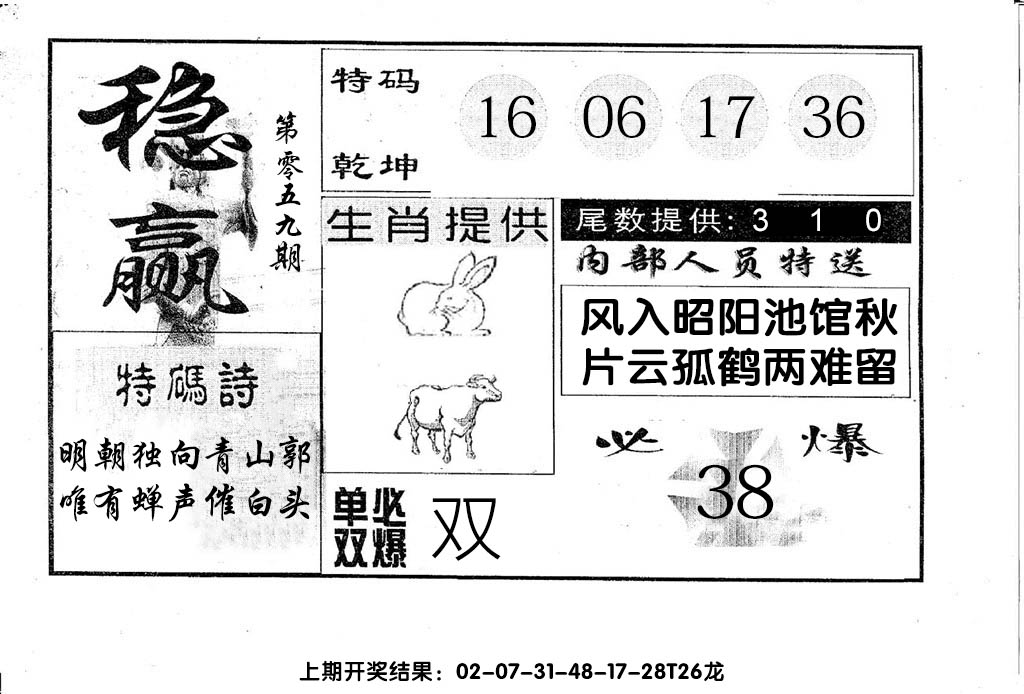 稳赢
第零五九期
特码
乾坤
16 06 17 36
生肖提供
尾数提供: 3 1 0
内部人员特送
风入昭阳池馆秋
片云孤鹤两难留
特碼詩
明朝独向青山郭
唯有蝉声催白头
必爆
38
单双
必爆
双
上期开奖结果：02-07-31-48-17-28T26龙